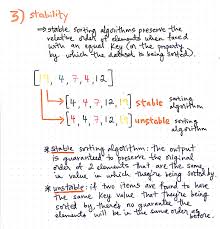 3) stability
→ stable sorting algorithms preserve the
relative order of elements when faced
with an equal key (or the property
by which the dataset is being sorted).
[19, 4, 7, 4, 12]
→ [4, 4, 7, 12, 19] stable sorting algorithm
→ [4, 4, 7, 12, 19] unstable sorting algorithm
* stable sorting algorithm: the output
is guaranteed to preserve the original
order of 2 elements that are the same
in value in which they're being sorted by.
* unstable: if two items are found to have
the same key value that they're being
sorted by, there's no guarantee the
elements will be in the same order as
before.